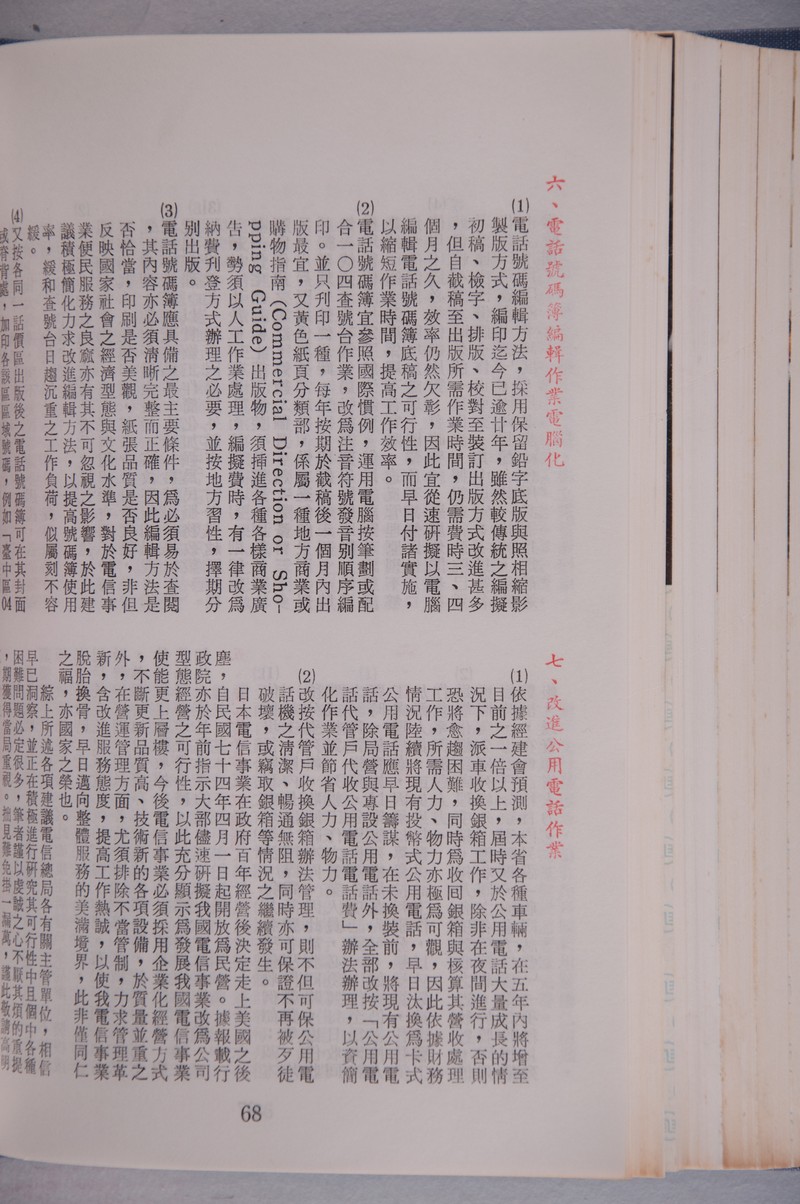 六、電話號碼簿編輯作業電腦化
(1)電話號碼編輯方法，採用保留鉛字底版與照相縮影
製版方式，編印迄今已逾廿年，雖然較傳統之編擬
初稿、檢字、排版、校對至裝訂出版方式改進甚多
，但自截稿至出版所需作業時間，仍需費時三、四
個月之久，效率仍然欠彰，因此宜從速研擬以電腦
編輯電話號碼簿底稿之可行性，而早日付諸實施，
以縮短作業時間，提高工作效率。
(2)電話號碼簿宜參照國際慣例，運用電腦按筆劃或配
合一〇四查號台作業，改爲注音符號發音别順序編
印。並只刋印一種，每年按期於截稿後一個月內出
版最宜，又黃色紙頁分類部，係屬一種地方商業或
購物指南（Commercial Direction or Sho-
pping Guide）出版物，須揷進各種各樣商業廣
告，勢須以人工作業處理，編擬費時，有一律改爲
納費刋登方式辦理之必要，並按地方習性，擇期分
别出版。
(3)電話號碼簿應具備之最主要條件，爲必須易於查閱
，其內容亦必須淸晰完整而正確，因此編輯方法是
否恰當，印刷是否美觀，紙張品質是否良好，非但
反映國家社會之經濟型態與文化水準，對於電信事
業便民服務之良窳亦有其不可忽視之影響，於此建
議積極簡化力求改進編輯方法，以提高號碼簿使用
率，緩和查號台日趨沉重之工作負荷，似屬刻不容
緩。
(4)又按各同一話價區出版後之電話號碼簿可在其封面
或脊背處，加印各該區區域號碼，例如「臺中區04
七、改進公用電話作業
(1)依據經建會預測，本省各種車輛，在五年內將增至
目前之一倍以上，屆時又於公用電話大量成長的情
況下，派車收換銀箱工作，除非在夜間進行，否則
恐將愈趨困難，同時爲收囘銀箱與核算其營收處理
工作，所需人力、物力亦極爲可觀，因此依據財務
情況陸續將現有投幣式公用電話，早日汰換爲卡式
公用電話應早日籌謀，在未換裝前，將現有公用電
話，除局營與專設公用電話外，全部改按「公用電
話代管戶代收公用電話電話費」辦法辦理，以資簡
化作業並節省人力、物力。
(2)改按代管戶收換銀箱辦法管理，則不但可保公用電
話機之淸潔、暢通無阻，同時亦可保證不再被歹徒
破壞，或竊取銀箱等情況之繼續發生。
日本電信事業在政府百年經營後決定走上美國之後
塵，自民國七十四年四月一日起開放爲民營。據報載行
政院亦於年前指示大部儘速研擬我國電信事業改爲公司
型態經營之可行性，以此充分顯示爲發展我國電信事業
使能更上層樓，今後電信事業必須採用企業化經營方式
，不斷更新品質高、技術新的各項設備，於質量並重之
外，在營運管理方面，尤須排除不當管制，力求管理革
新，含改進服務態度，提高工作熱誠，以使我電信事業
脫胎換骨，早日邁向整體服務的美滿境界，此非僅同仁
之福，亦國家之榮也。
綜上所述各項建議電信總局各有關主管單位，相信
早已洞察，並正在積極進行研究其可行性中且個中各種
困難問題必定很多，筆者謹以虔誠之心不厭其煩的重提
，期獲得當局重視。拙見難免掛一漏萬，謹此敬請高明
68